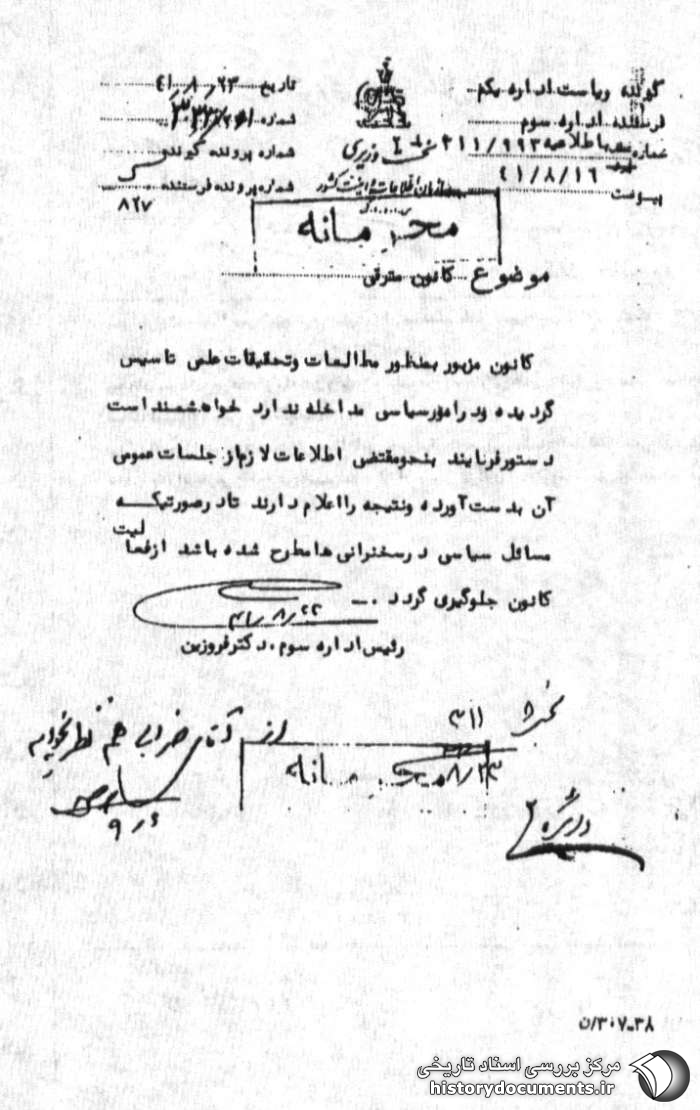 گیرنده ریاست اداره یکم
فرستنده اداره سوم
شماره عطف باطلاعیه ۲۱۱/۹۹۳
۴۱/۸/۱۶
پیوست
تاریخ ۴۱٫۸٫۲۳
شماره
شماره پرونده گیرنده
شماره پرونده فرستنده
۸۲۷
نخست وزیری
سازمان اطلاعات و امنیت کشور
س.ا.و.ا.ک
محرمانه
موضوع کانون مترقی
کانون مزبور بمنظور مطالعات وتحقیقات علمی تاسیس
گردیده ودرامورسیاسی مداخله ندارد خواهشمند است
دستورفرمایند بنحومقتضی اطلاعات لازم از جلسات عمومی
آن بدست آورده ونتیجه رااعلام دارند تادرصورتیکه
مسائل سیاسی درسخنرانی هامطرح شده باشد ازفعالیت
کانون جلوگیری گردد .—
۴۱٫۸٫۲۲
رئیس اداره سوم . دکترفروزین
بخش
۳۱۱
۸/۲۳
محرمانه
از آقای ضرابی هم نظر بخواهید
۹٫۶
۳۰۷-۳۸/ن
مرکز بررسی اسناد تاریخی
historydocuments.ir